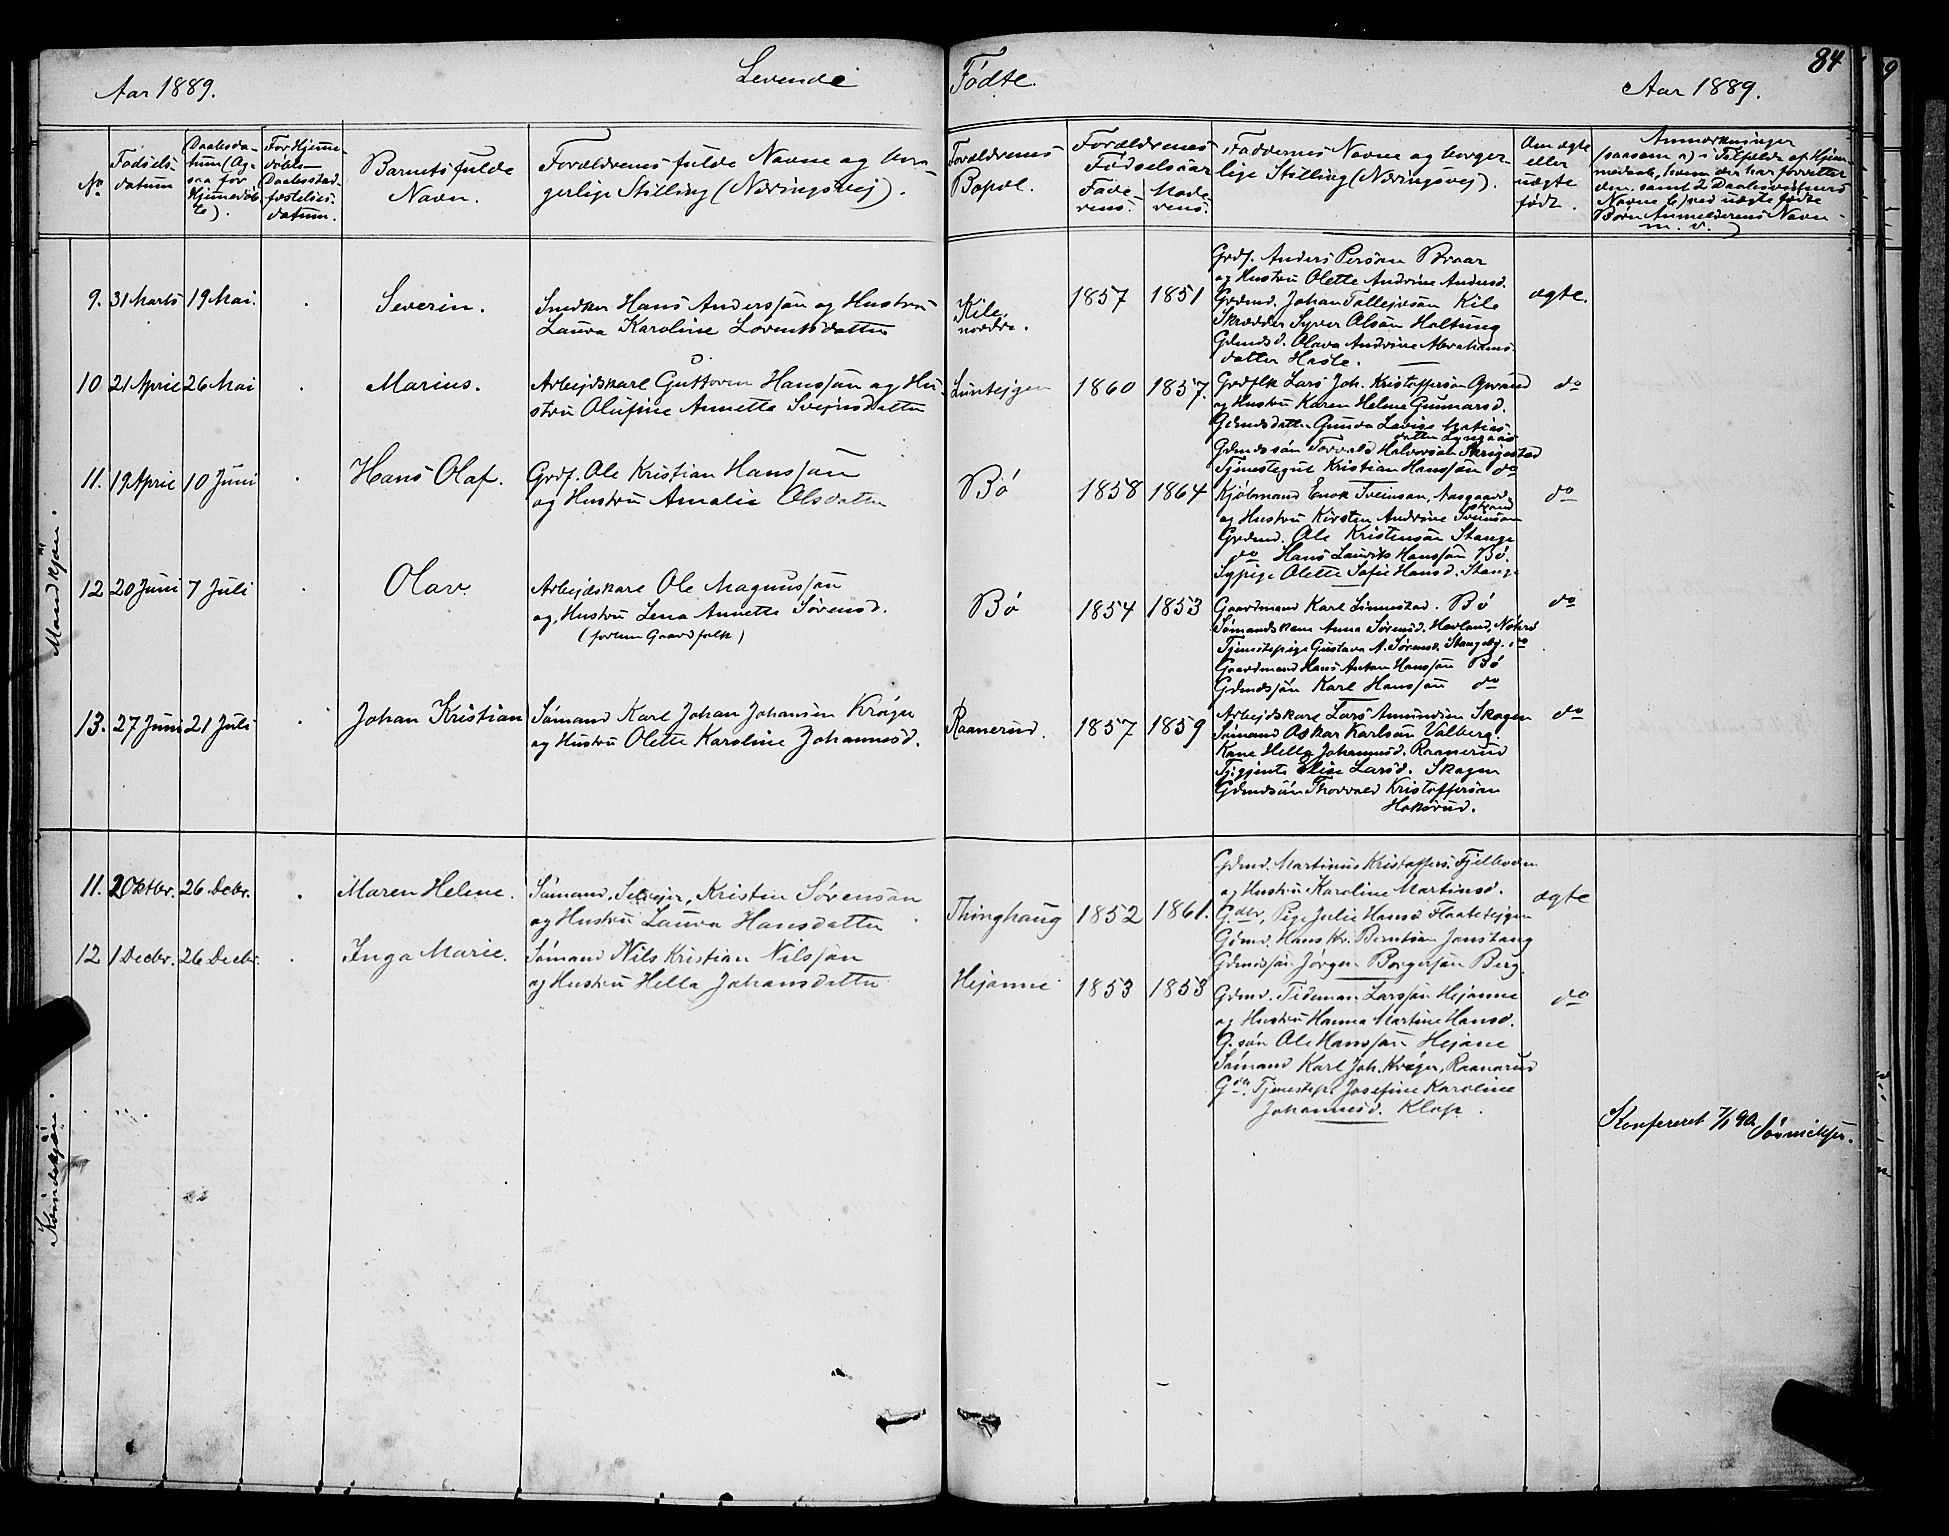 84
Aar 1889.
Levende
Fødte.
Aar 1889.
No
Fødsels-
datum
Daabsda-
tum (Og-
saa for
Hjemmedøb-
te).
For Hjemme-
døbte
Daabsstad-
fæstelses-
datum.
Barnets fulde
Navn.
Forældrenes fulde Navne og bor-
gerlige Stilling (Næringsvej).
Forældrenes
Bopæl.
Forældrenes
Fødselsaar
Fade-
rens.
Mode-
rens.
Faddernes Navne og borger-
lige Stilling (Næringsvej).
Om ægte
eller
uægte
født.
Anmærkninger
(saasom a) i Tilfælde af Hjem-
medaab, hvem der har forrettet
den, samt 2 Daabsvidners
Navne b) ved uægte fødte
Børn Anmelderens Navn
m. v.)
Mandkjøn.
9. 31 Marts 19 Mai. Severin.
Snedker Hans Anderssøn og Hustru
Laura Karoline Lorentsdatter
Kile,
nordre.
1857 1851
Grdf. Anders Persøn Braar
og Hustru Olette Andrine Andersd.
Grdmd. Johan Tallejvsøn Kile
Skrædder Syver Olsøn Holtung
Gdmdsd. Olava Andrine Abrahams-
datter Hasle.
ægte.
10 21 April 26 Mai Marius.
Arbejdskarl Guttorm Hanssøn og Hu-
stru Olufine Annette Svejnsdatter
Luntejgen
1860 1857.
Grdflk Lars Joh. Kristoffersøn
og Hustru Karen Helene Gunnarsd.
Gdmdsdatter Gunda Lovise Matias-
datter Lyngaas
Gdmdssøn Torvald Halvorsøn
Tjenestegut Kristian Hanssøn do
do
11. 19 April 10 Juni Hans Olaf.
Grdf. Ole Kristian Hanssøn
og Hustru Amalie Olsdatter
Bø
1858 1864
Kjøbmand Enok Sveinsøn, Aasgaard-
strand
og Hustru Kirsten Andrine Sveinsøn
Grdmd. Ole Kristensøn Stange
do Hans Laurits Hanssøn Bø.
Sypige Olette Sofie Hansd. Stange
do
12 20 Juni 7 Juli Olav
Arbejdskarl Ole Magnussøn
og Hustru Lena Annette Sørensd.
(forhen Gaardfolk)
Bø
1854 1853
Gaardmand Karl Linnestad. Bø
Sømandskone Anna Sørensd. Hovland, Nøterø
Tjenestepige Gustava A. Sørensd. Stangeby. do
Gaardmand Hans Anton Hanssøn Bø
Gdmdssøn Karl Hanssøn do
do
13. 27 Juni 21 Juli Johan Kristian
Sømand Karl Johan Johansen Krøger
og Hustru Olette Karoline Johannesd.
Raanerud.
1857 1859
Arbejdskarl Lars Amundsen Skogen
Sømand Oskar Karlsøn Valberg.
Kone Hella Johannesd. Raanerud
Tj.gjente Elise Larsd. Skogen
Gdmdsøn Thorvald Kristoffersøn
Hokørud.
do
Kvindekjøn.
11. 2 Oktbr. 26 Decbr. Maren Helene.
Sømand, Selvejer, Kristen Sørensøn
og Hustru Laura Hansdatter
Thinghaug
1852 1861.
Gdmd. Martinus Kristoffers. Fjelboden
og Hustru Karoline Martinsd.
G.dtr, Pige Julie Hansd Flaatetejgen
Gdmd. Hans Kr. Berntsøn Jonstang
Gdmdssøn Jørgen Borgersøn Berg.
ægte
12 1 Decbr. 26 Decbr. Inga Marie.
Sømand Nils Kristian Nilssøn
og Hustru Hella Johansdatter
Hejanne
1853 1853
Gdmd. Tideman Larssøn Hejanne
og Hustru Hanna Martine Hansd.
G.søn Ole Hanssøn Hejane
Sømand Karl Joh. Krøger, Raanerud
Gdr. Tjenestep. Josefine Karoline
Johannesd. Klop.
do
Konfereret 7/1 90.